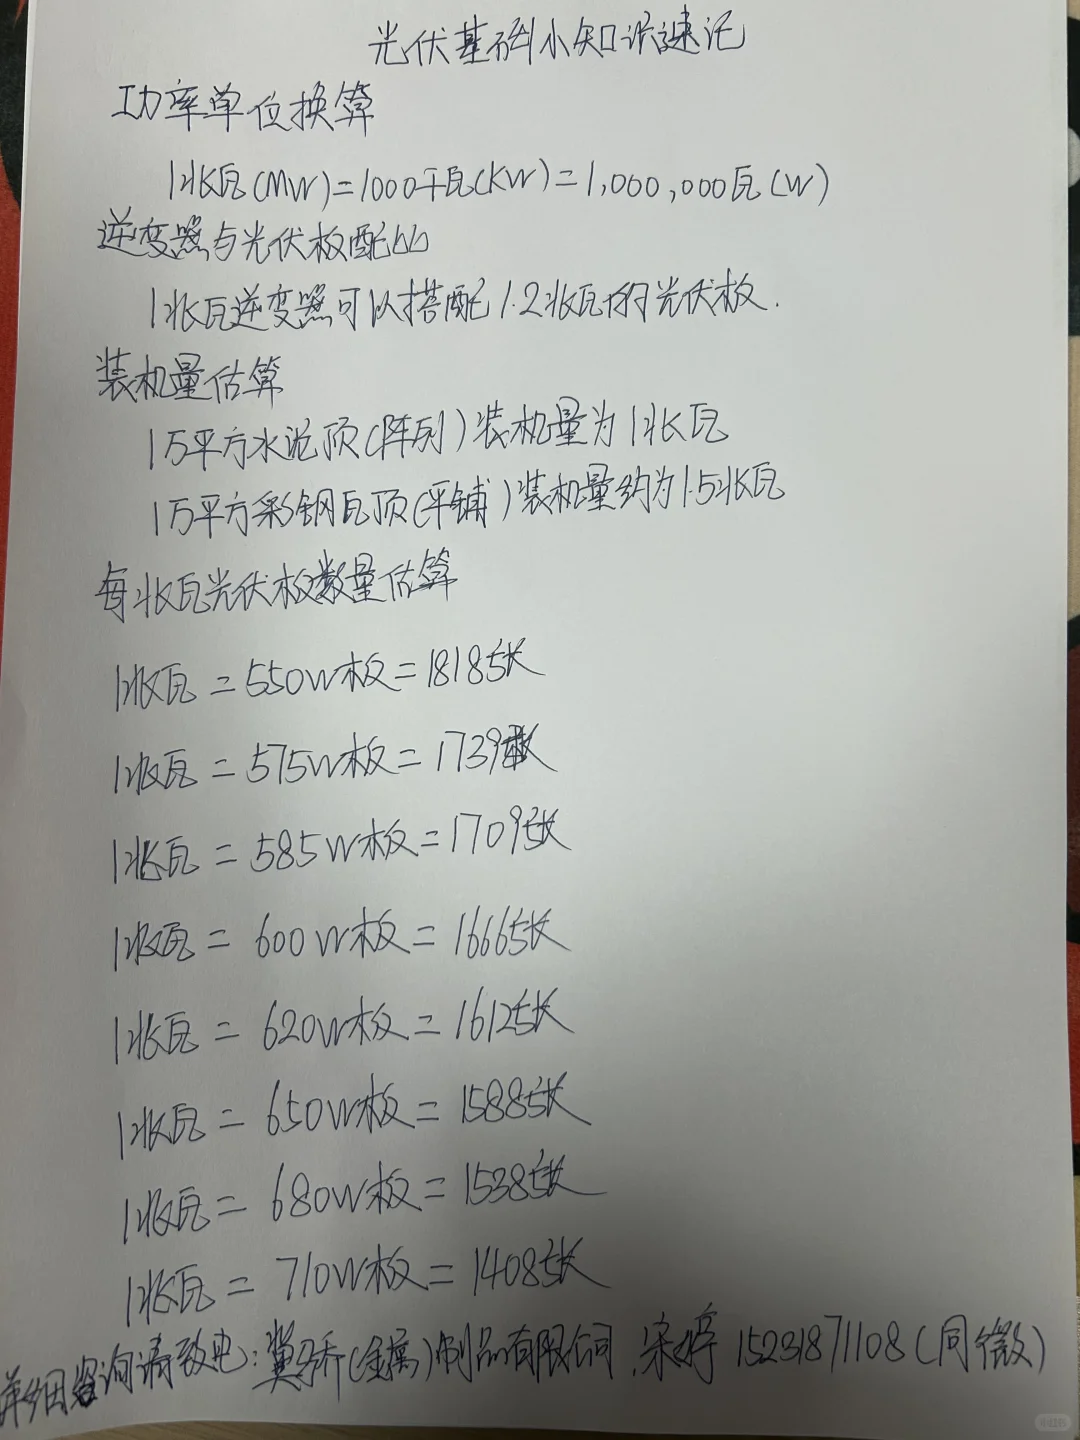 光伏基础小知识速记
功率单位换算
1兆瓦(MW)=1000千瓦(KW)=1,000,000瓦(W)
逆变器与光伏板配比
1兆瓦逆变器可以搭配1.2兆瓦的光伏板.
装机量估算
1万平方水泥顶(阵列)装机量为1兆瓦
1万平方彩钢瓦顶(平铺)装机量约为1.5兆瓦
每兆瓦光伏板数量估算
1兆瓦=550W板=1818张
1兆瓦=575W板=1739张
1兆瓦=585W板=1709张
1兆瓦=600W板=1666张
1兆瓦=620W板=1612张
1兆瓦=650W板=1588张
1兆瓦=680W板=1538张
1兆瓦=710W板=1408张
详细咨询请致电:冀乔(金属)制品有限公司,宋婷 15231871108(同微)
小红书